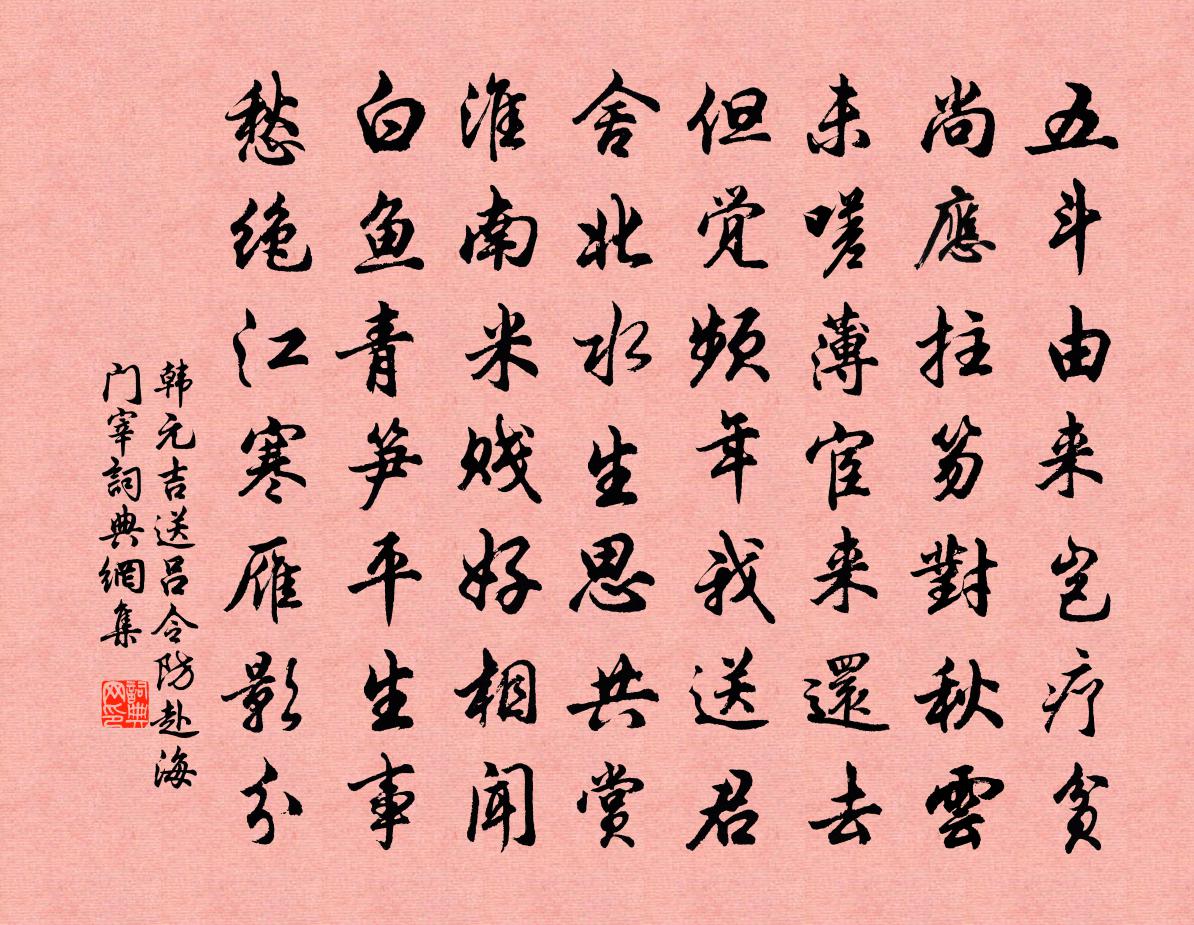 五斗由来岂疗贫
尚應拄笏對秋雲
未嗟薄宦来還去
但觉频年我送君
舍北水生思共赏
淮南米贱好相闻
白鱼青笋平生事
愁绝江寒雁影分
韩元吉送吕令防赴海
门宰詞典網集
詞典
网印